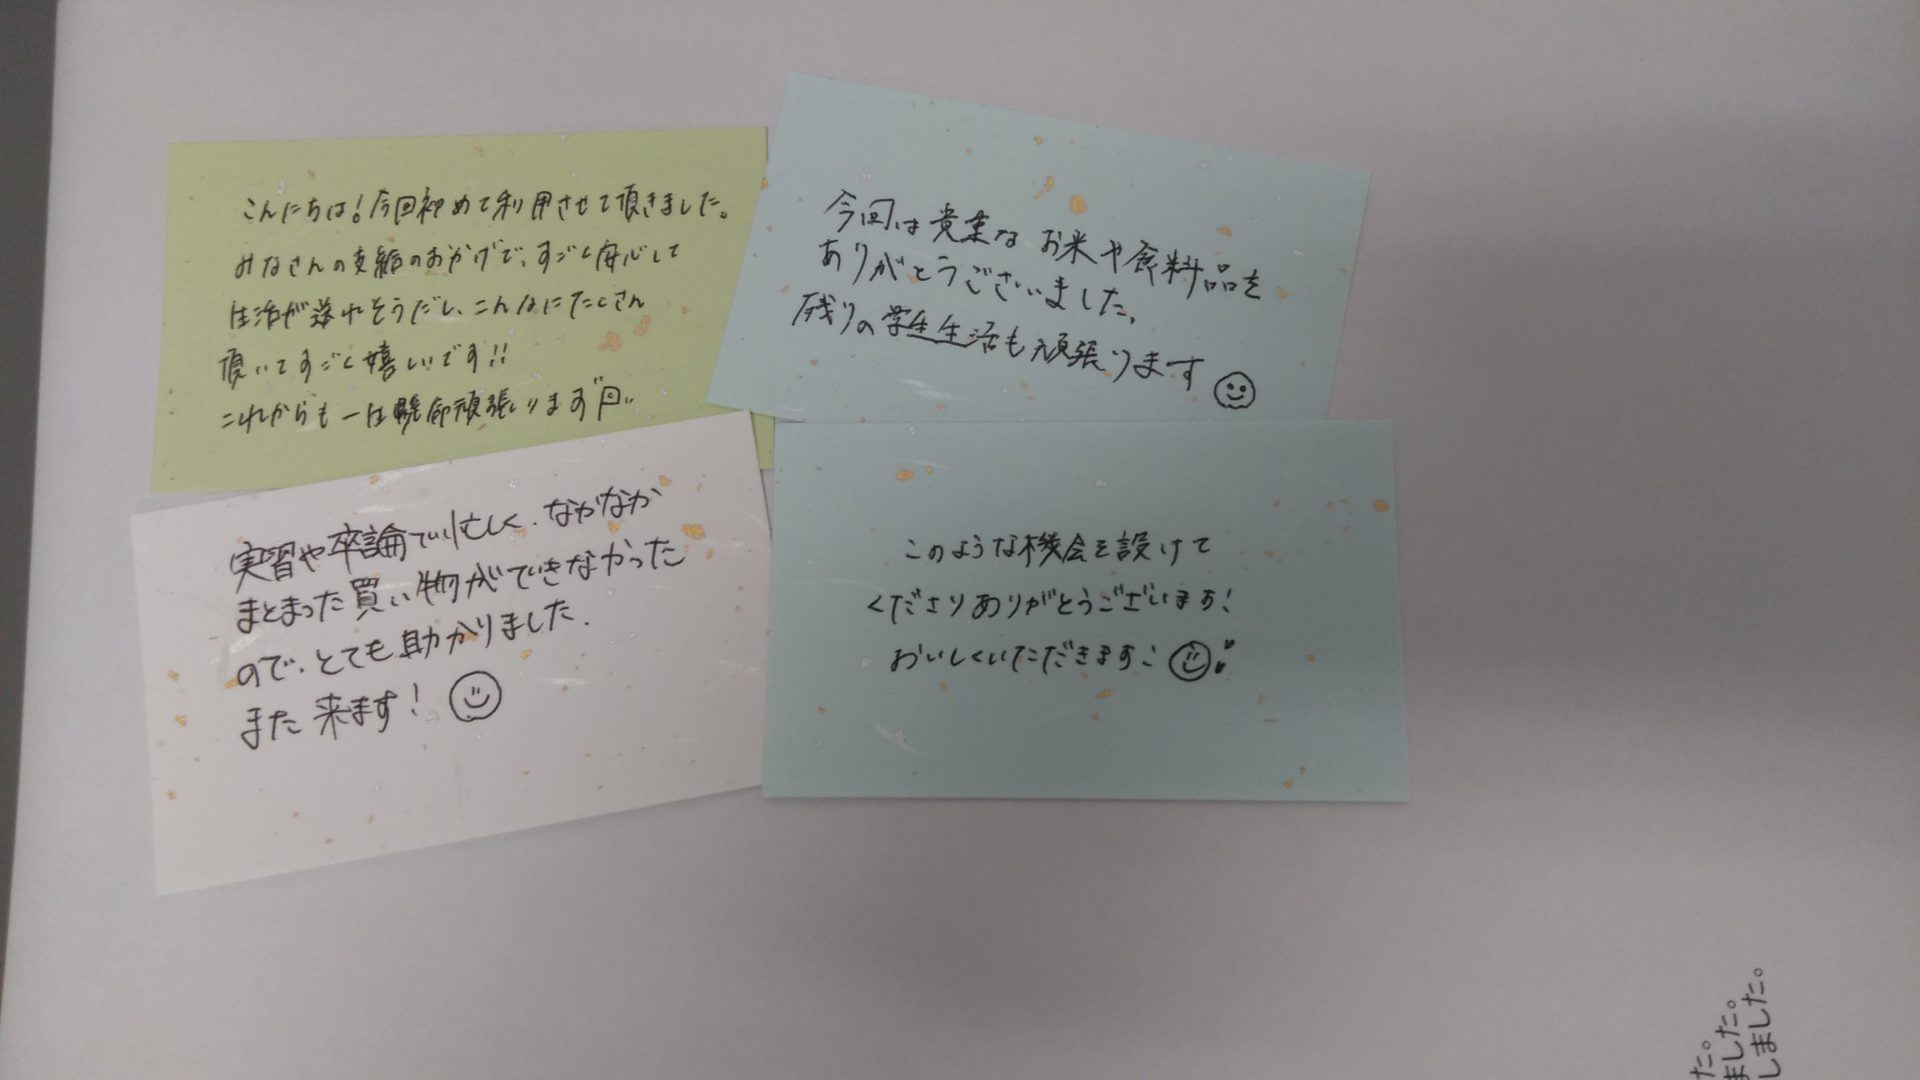 こんにちは!今回初めて利用させて頂きました。
みなさんの支給のおかげで、すごく安心して
生活が送れそうだし、こんなにたくさん
頂いてすごく嬉しいです!!
これからも一生懸命頑張ります
今回は貴重なお米や食料品を
ありがとうございました。
残りの学生生活も頑張ります
実習や卒論で忙しく、なかなか
まとまった買い物ができなかった
ので、とても助かりました.
また来ます!
このような機会を設けて
くださりありがとうございます!
おいしくいただきます
た。
ました。
しました。